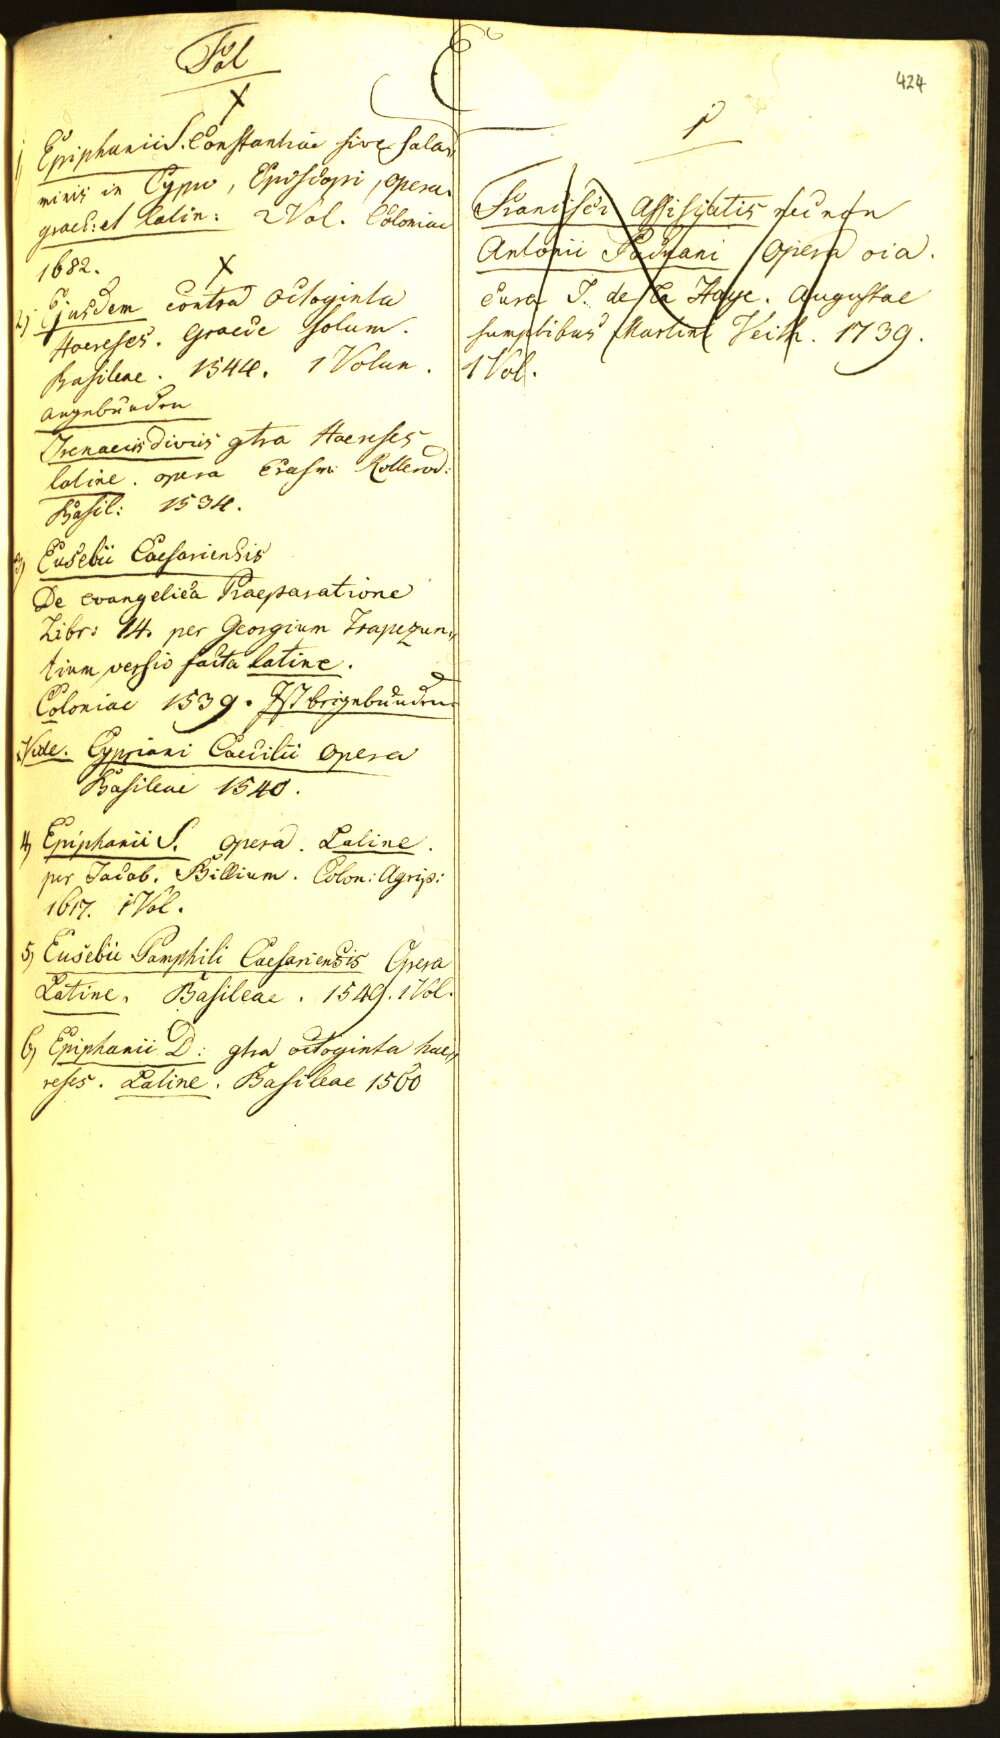 424
Fol
E
1) Epiphanii S. Constantiae sive Sala„
minis in Cypro, Episcopi, opera
graec: et latin: 2 Vol. Coloniae
1682.
2) Ejusdem contra octoginta
Haereses. Graece solum.
Basileae. 1544. 1 Volum.
angebunden
Irenaeus divus gtra Haereses
latine. opera Erasmi Rotterod:
Basil: 1534.
3) Eusebii Caesariensis
De evangelica Praeparatione
Libr: 14. per Georgium Trapezun„
tium versio facta latine.
Coloniae 1539. Ist beigebunden
Vide. Cypriani Caecilii opera
Basileae 1540.
4) Epiphanii S. opera. Latine.
per Jacob. Billium. Colon: Agrip:
1617. 1 Vol.
5) Eusebii Pamphili Caesariensis Opera
Latine. Basileae. 1549. 1 Vol.
6) Epiphanii D: gtra octoginta hae„
reses. Latine. Basileae 1560
Francisci Assisiatis necnon
Antonii Paduani Opera oia.
cura J. de la Haye. Augustae
sumptibus Martini Veith. 1739.
1 Vol.